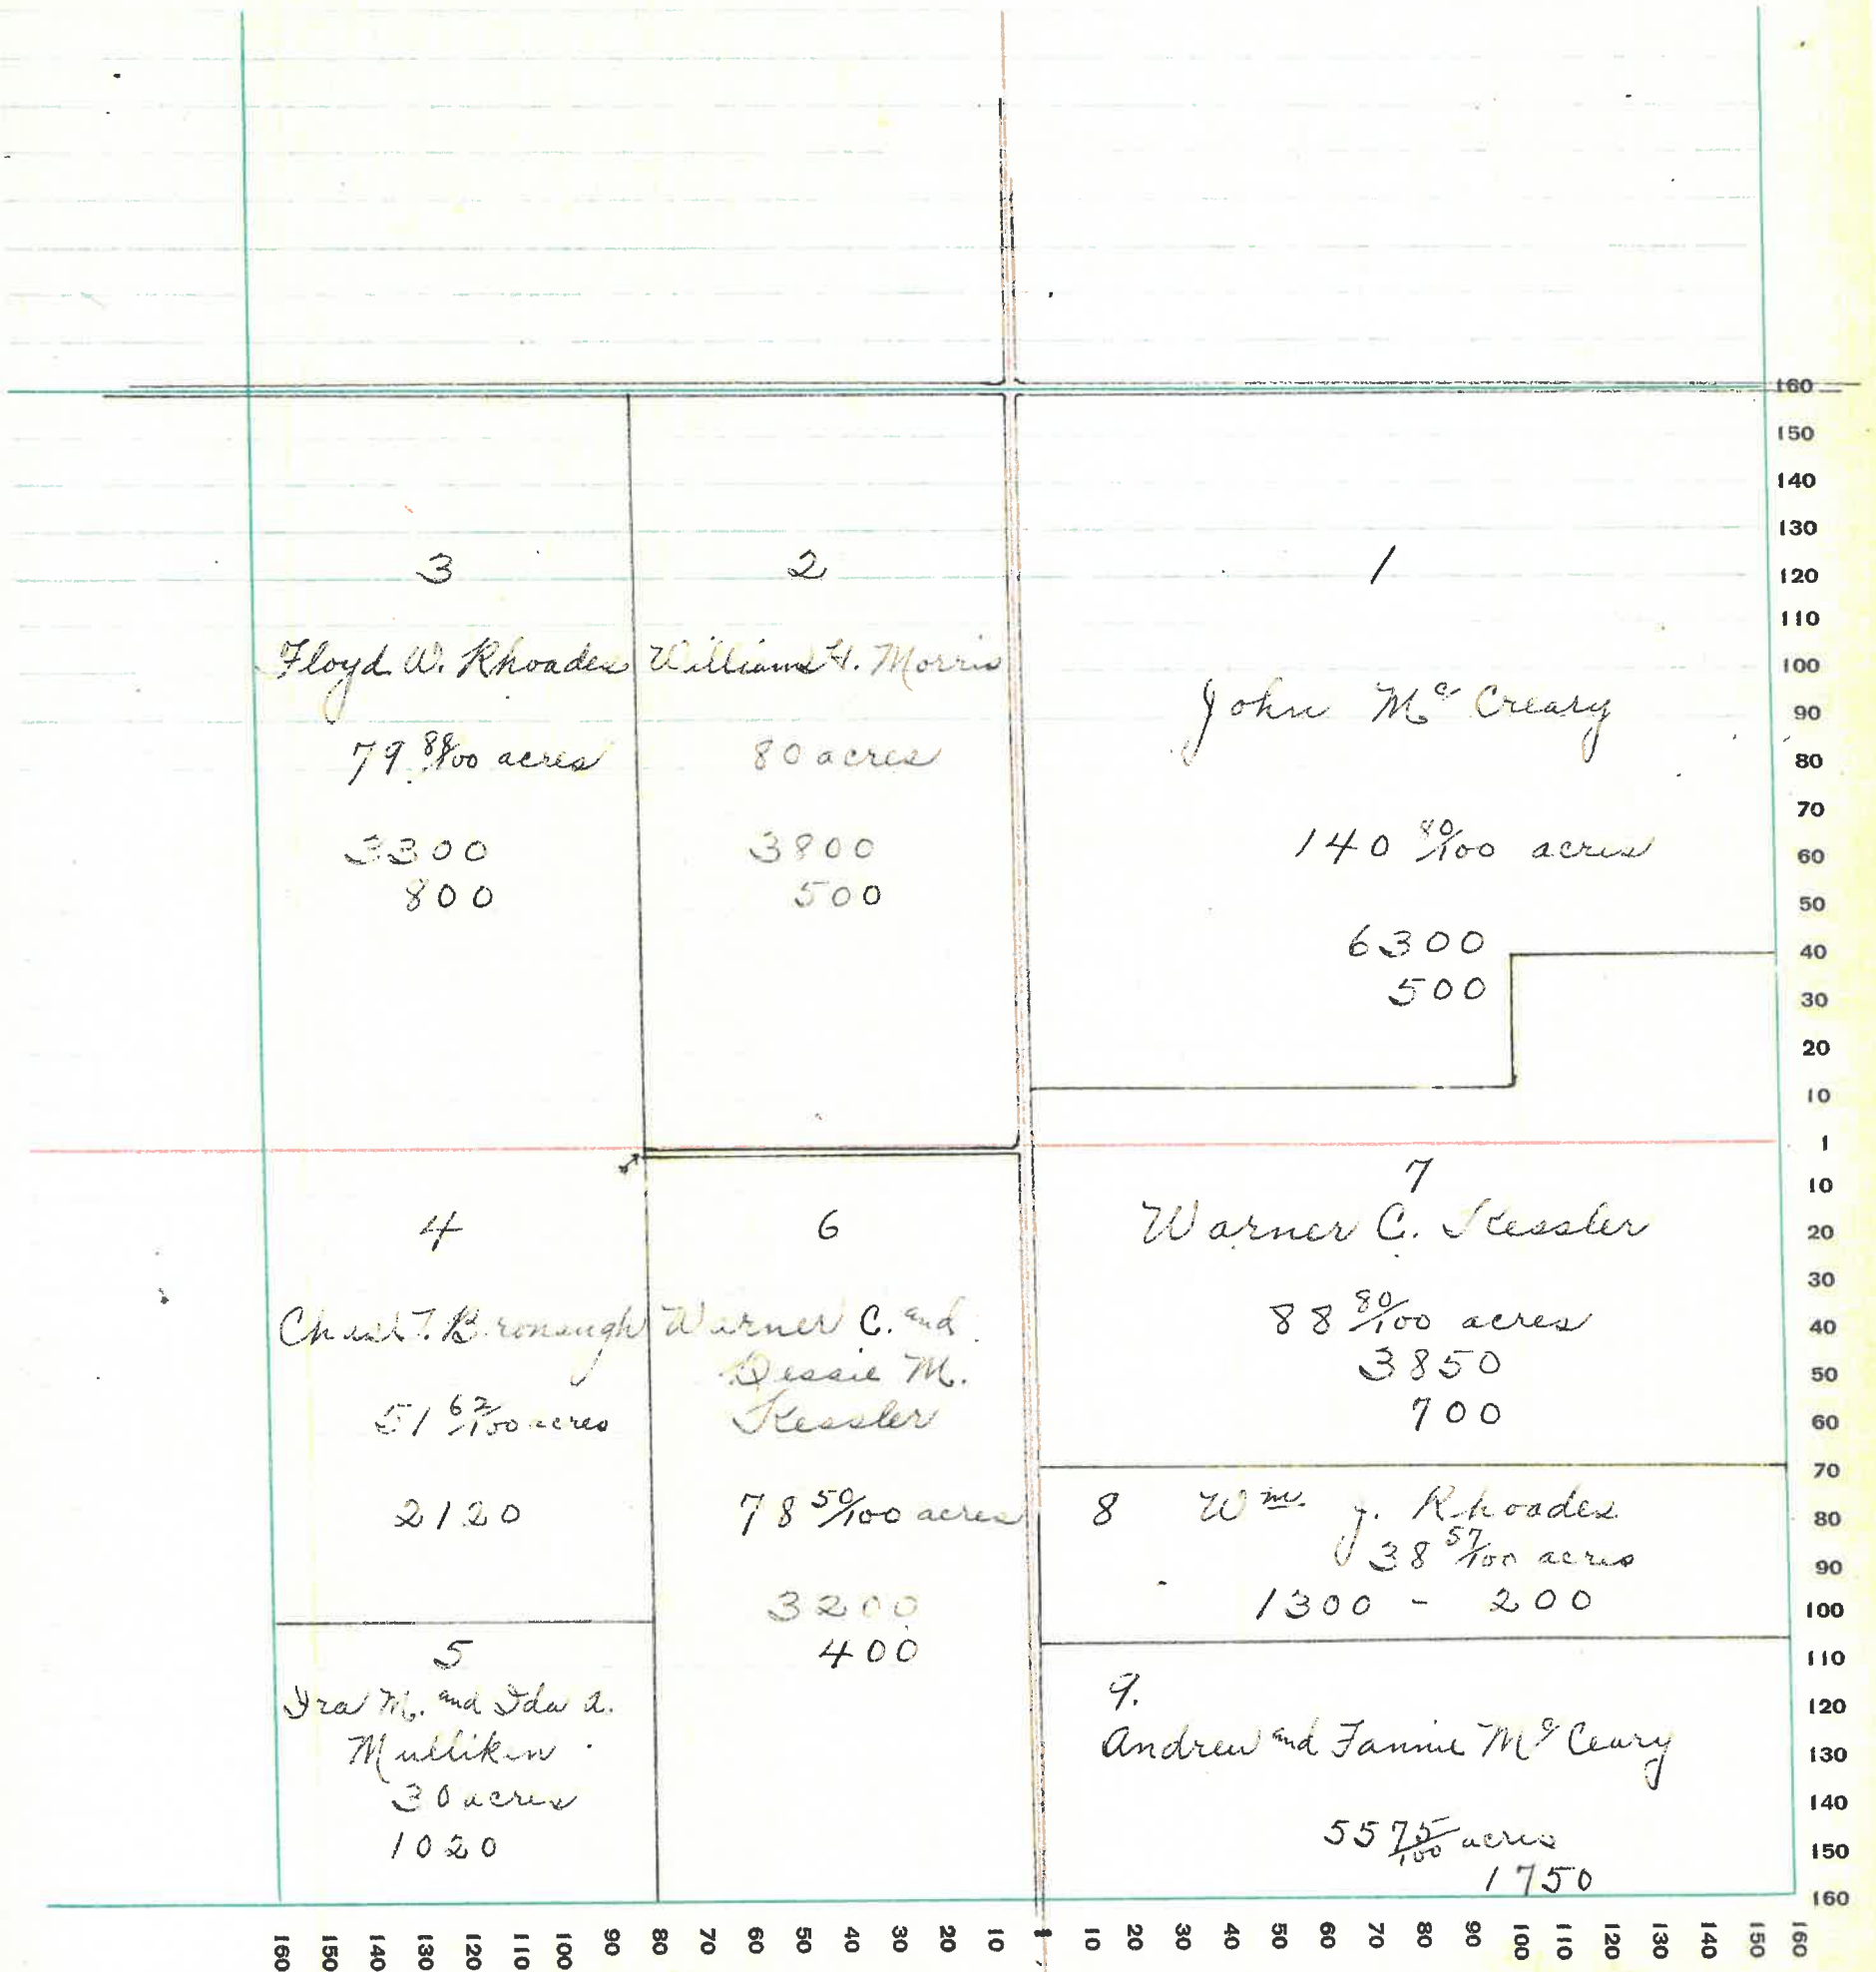 3
Floyd W. Rhoades
79 88/100 acres
3300
800
2
William H. Morris
80 acres
3800
500
1
John Mc Creary
140 80/100 acres
6300
500
4
Chas T. Bronaugh
51 62/100 acres
2120
5
Ira M. and Ida A.
Mulliken
30 acres
1020
6
Warner C. and
Dessie M.
Kessler
78 50/100 acres
3200
400
7
Warner C. Kessler
88 80/100 acres
3850
700
8 Wm. J. Rhoades
38 57/100 acres
1300 - 200
9.
Andrew and Fannie Mc Ceary
55 75/100 acres
1750
160
150
140
130
120
110
100
90
80
70
60
50
40
30
20
10
1
10
20
30
40
50
60
70
80
90
100
110
120
130
140
150
160
160 150 140 130 120 110 100 90 80 70 60 50 40 30 20 10 1 10 20 30 40 50 60 70 80 90 100 110 120 130 140 150 160